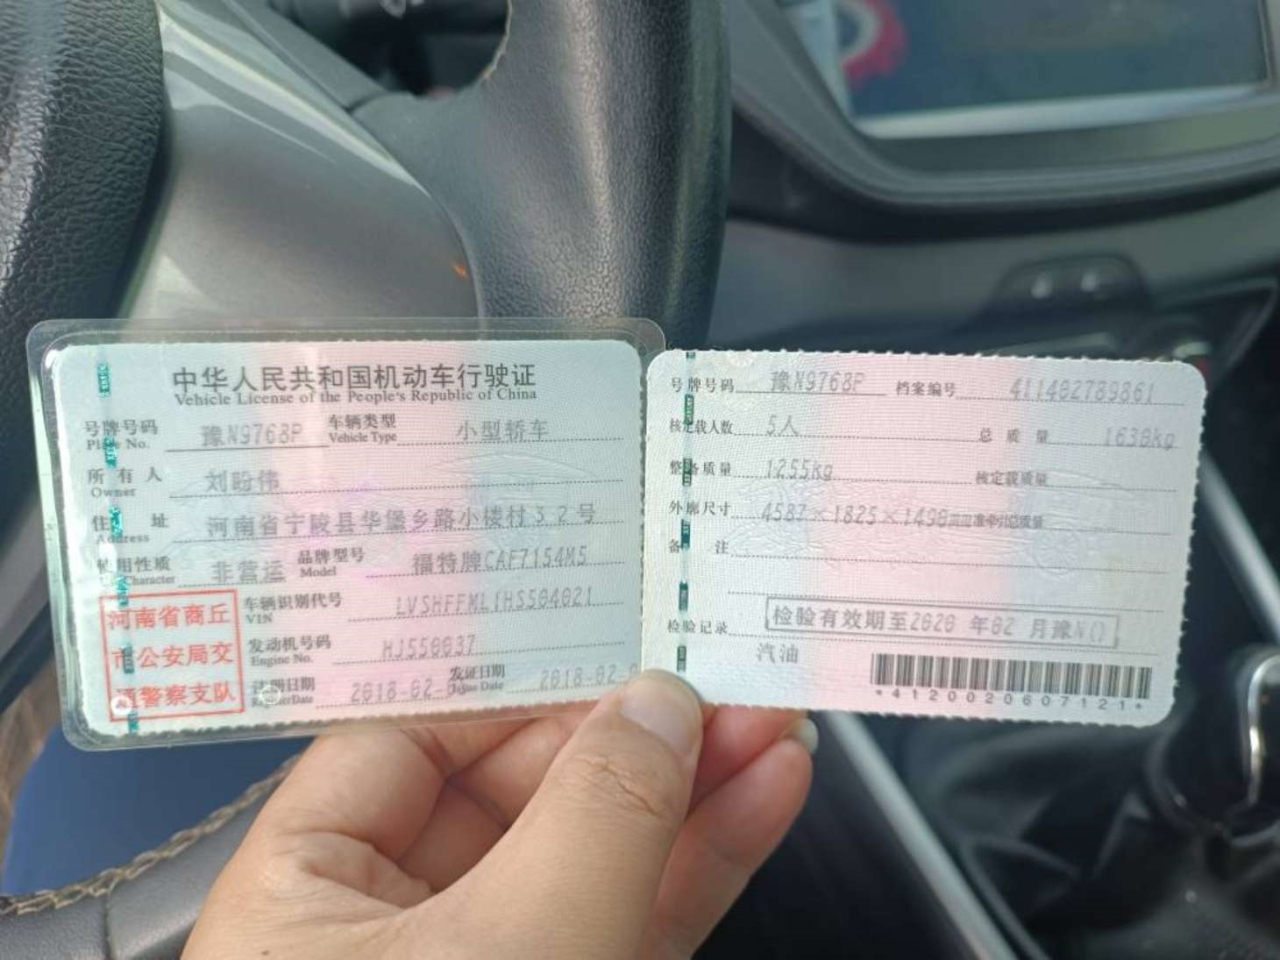 中华人民共和国机动车行驶证
Vehicle License of the People's Republic of China
号牌号码 豫N9768P 车辆类型 小型轿车
Plate No. Vehicle Type
所有人 刘盼伟
Owner
住址 河南省宁陵县华堡乡路小楼村32号
Address
使用性质 非营运 品牌型号 福特牌CAF7154M5
Character Model
车辆识别代号 LVSHFFML1HS504021
VIN
发动机号码 HJ550037
Engine No.
注册日期 2018-02- 发证日期 2018-02-
Issue Date
河南省商丘
市公安局交
通警察支队
号牌号码 豫N9768P 档案编号 411402789861
核定载人数 5人 总质量 1630kg
整备质量 1255kg 核定载质量
外廓尺寸 4587×1825×1490mm 准牵引总质量
备注
检验记录 检验有效期至2020年02月豫N()
汽油
*4120020607121*